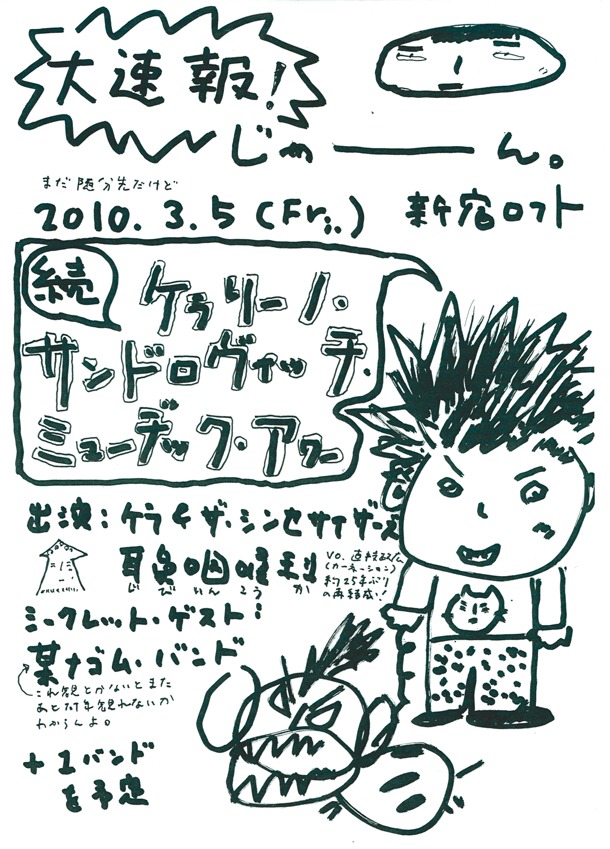 大速報!
じゃーーーん。
まだ随分先だけど
2010. 3. 5 (Fri.)
新宿ロフト
続
ケラリーノ・
サンドロヴィッチ・
ミュージック・アワー
出演:ケラ&ザ・シンセサイザーズ
耳鼻咽喉科
じびいんこうか
VO. 直枝政広
(カーネーション)
約25年ぶり
の再結成!
シークレット・ゲスト:
某ナゴム・バンド
これ観とかないとまた
あと何年観れないか
わからんよ。
+1バンド
を予定